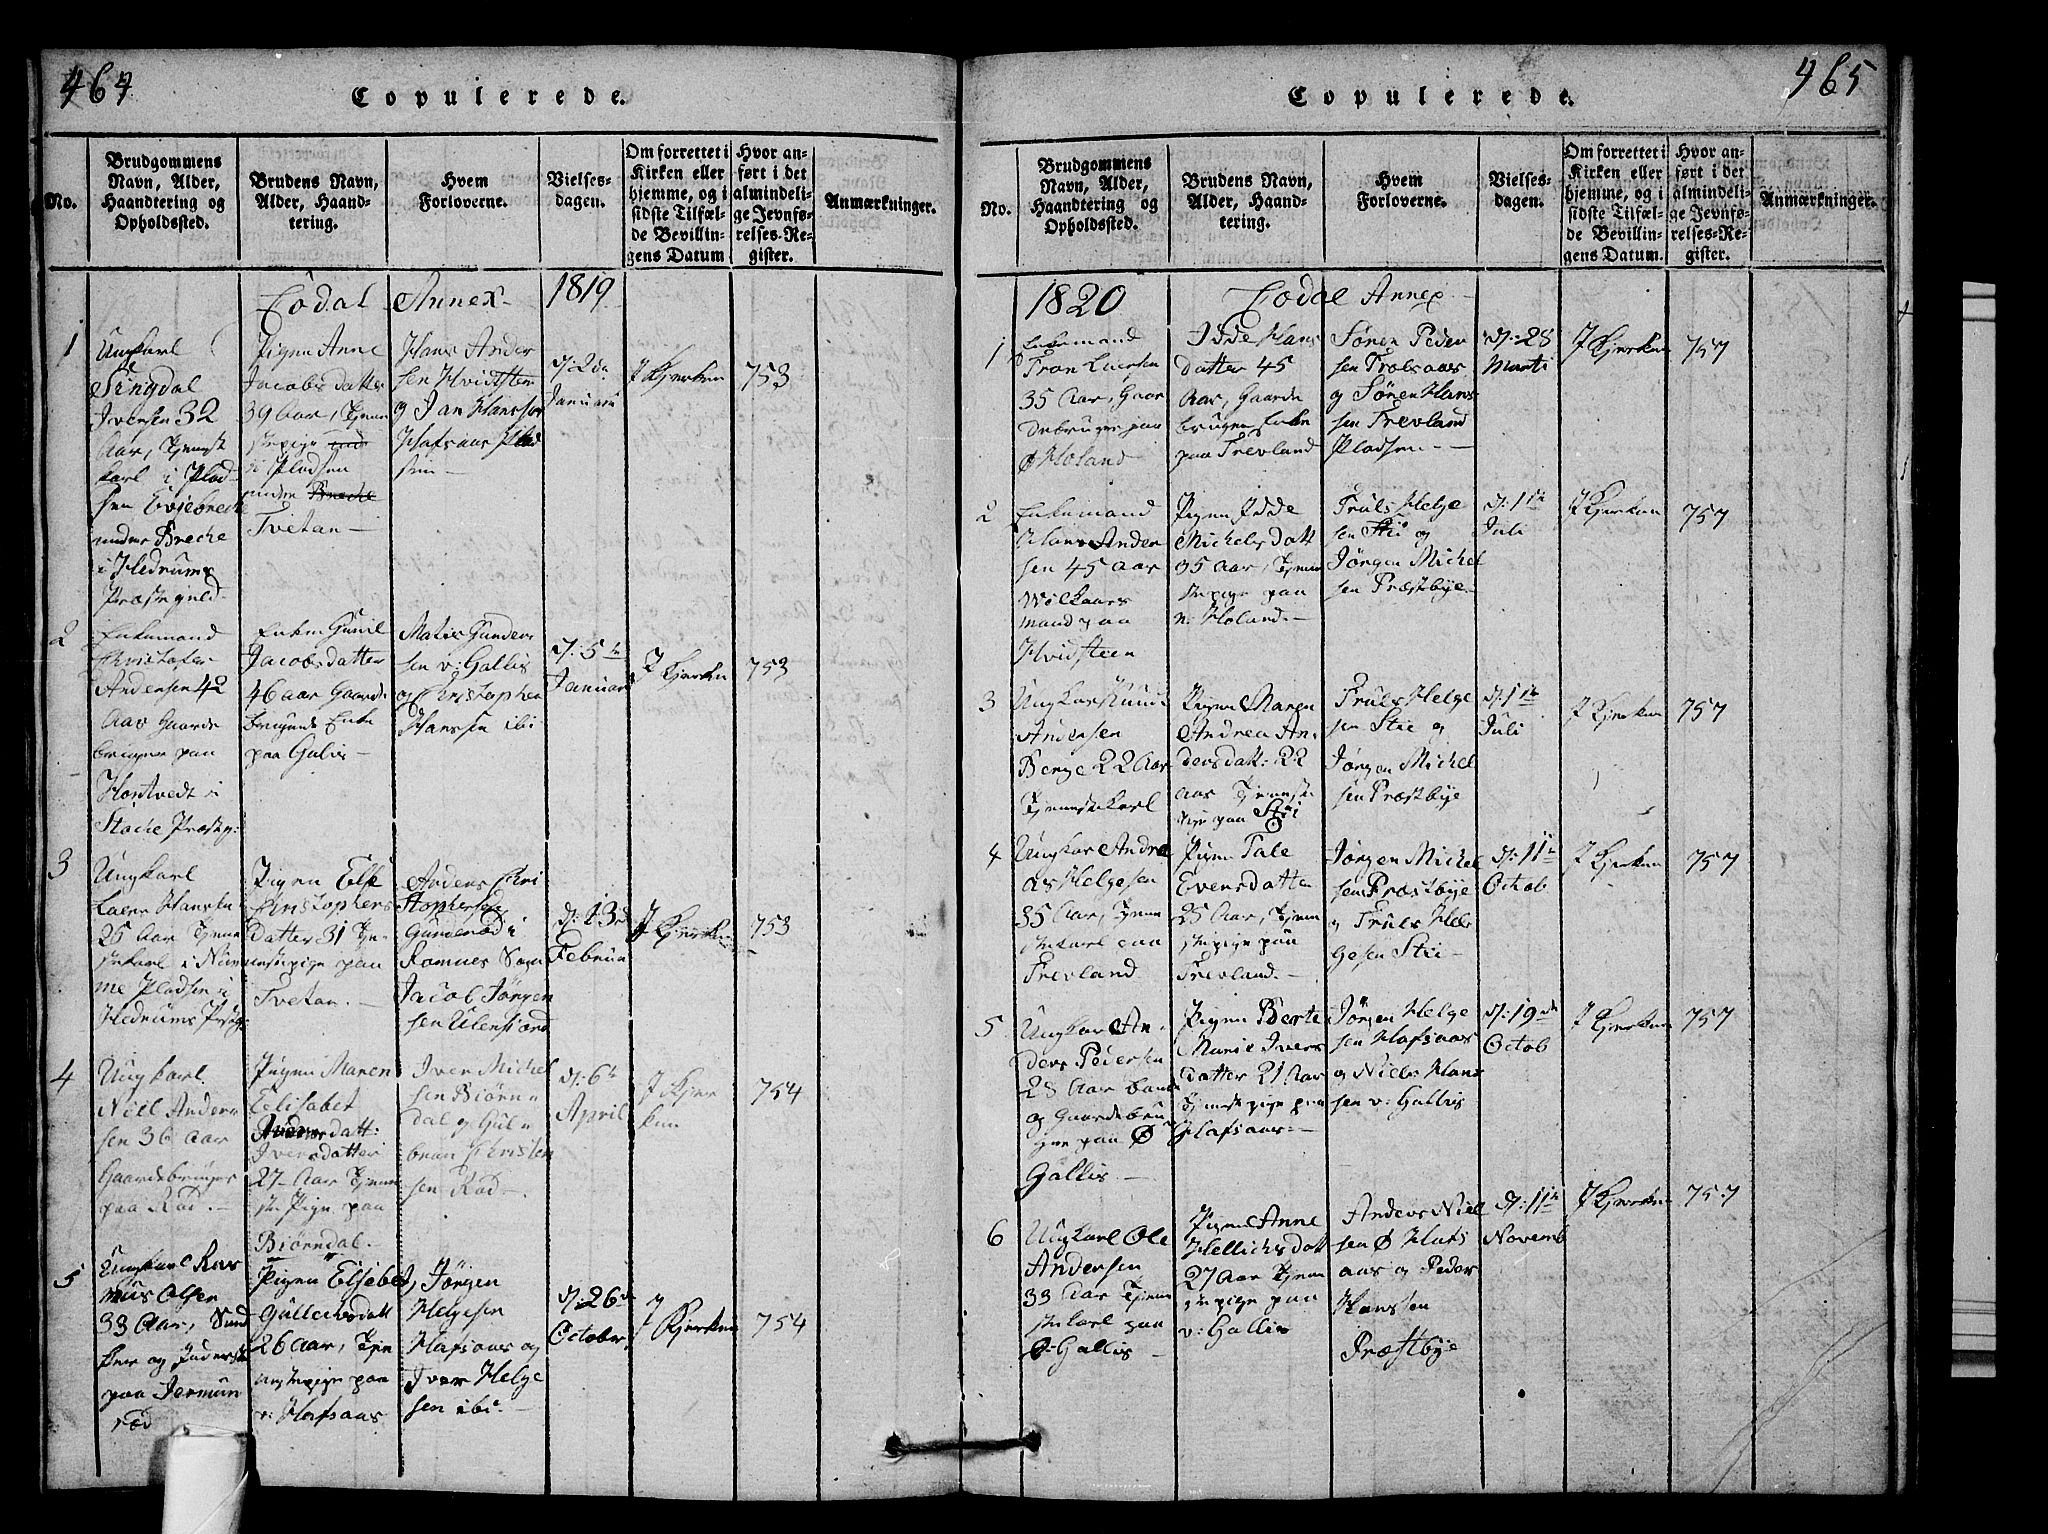 464
Copulerede.
No.
Brudgommens
Navn, Alder,
Haandtering og
Opholdssted.
Brudens Navn,
Alder, Haand-
tering.
Hvem
Forloverne.
Vielses-
dagen.
Om forrettet i
Kirken eller
hjemme, og i
sidste Tilfæl-
de Bevillin-
gens Datum
Hvor an-
ført i det
almindeli-
ge Jevnfø-
relses-Re-
gister.
Anmærkninger.
Codal Annex 1819
1
Ungkarl
Singdal
Iversen 32
Aar, Tjenest
karl i Plad-
sen
under Breche
i Hedrums
Præstegield
Pigen Anne
Jacobsdatter
39 Aar, Tjenne
stepige
i Pladsen
under Breche
Tvetan
Hans Ander
sen Hvidsten
og Jan Hanssøn
Hafsaas Plad
sen
Januari
J Kjerken
753
2
Enkemand
Christofer
Andersen 42
Aar Gaard
bruger paa
Hontvedt i
Stoche Præstg:
Enken Gunil
Jacobsdatter
46 aar Gaard
brugende Enke
paa Galis
Matis Gunders
sen v: Gallis
og Christophen
Hanssen ibi
d: 5te
Januar
J Kjerken
753
3
Ungkarl
Laers Hansen
25 Aar Tjenne
stekarl i
Pladsen i
Hedrums
Pigen Else
Christophers
Datter 31 Tje-
nestepige paa
Tvetan.
Anders Chri
stophersen
Gunderød i
Ramnes Sogn
Jacob Jørgen
sen
d: 13
Februa
J Kjerken
753
4
Ungkarl
Niels Anders
sen 36 Aar
Gaardebruger
paa Rød.
Pigen Maren
Elisabet
Iversdatter
27 Aar Tjenne
ste Pige paa
Biørndal.
Iver Michel
sen Biørn
dal og Gul
bran Christen
sen Rød
d: 6te
April
J Kjer
ken
754
5
Ungkarl Ras
mus Olsen
33 Aar,
paa Jermun
rød
Pigen Elsebet
Gullechsdatt
26 Aar, Tjen
estepige paa
v: Hafsaas
Jørgen
Helgesen
Hafsaas og
Iver Helge
sen ibi.
d: 26
October
J Kjerken
754
465
Copulerede.
No.
Brudgommens
Navn, Alder,
Haandtering og
Opholdssted.
Brudens Navn,
Alder, Haand-
tering.
Hvem
Forloverne.
Vielses-
dagen.
Om forrettet i
Kirken eller
hjemme, og i
sidste Tilfæl-
de Bevillin-
gens Datum.
Hvor an-
ført i det
almindeli-
ge Jevnfø-
relses-Re-
gister.
Anmærkninger.
1820 Codal Annex
1
Enkemand
35 Aar, Gaar
debruger paa
Ø Holand
Idde Hans
datter 45
Aar, Gaarde
bruger Enke
paa Trevland
Søren Peder
sen Trolsaas
og Søren Hans
sen Trevland
Pladsen
d: 28
Marti
J Kjerken
757
2
Enkemand
Hans Ander
sen 45 Aar
mand paa
Hvidsteen
Pigen Idde
Michelsdatt
35 Aar, Tjenne
stepige paa
n: Holand.
Truls Helge
sen Stii og
Jørgen Michel
sen Præstbye
d: 1te
Juli
J Kjerken
757
3
Ungkar Knud
Andersen
Berge 22 Aar
Tjennestekarl
Pigen Maren
Andrea An-
dersdatt: 22
Aar Tjenneste
pige paa Stii
Truls Helge
sen Stie og
Jørgen Michel
sen Præstbye
d: 1te
Juli
J Kjerken
757
4
Ungkar Andre
as Helgesen
35 Aar, Tjenne
stekarl paa
Trevland
Pigen Tale
Evensdatter
25 Aar, Tjenne
stepige paa
Trevland.
Jørgen Michel
sen Præstbye
og Truls Hel
gesen Stii
d: 11te
Octob
J Kjerken
757
5
Ungkar An-
ders Pedersen
28 Aar
og Gaardebru
ger paa Ø
Gallis.
Pigen Berte
Marie Ivers
datter 21 Aar
Tjenestepige paa
Hafsaas
Jørgen Helge
sen Hafsaas
og Niels Hans
sen v: Gallis
d: 19de
Octob
J Kjerken
757
6
Ungkarl Ole
Andersen
33 Aar Tjenne
stekarl paa
Ø: Gallis
Pigen Anne
Hellichsdatt
27 Aar Tjenne
stepige paa
v: Gallis
Anders Niel
sen Ø Hafs
aas og Peder
Hanssen
Præstbye
d: 11te
Novemb
J Kjerken
757